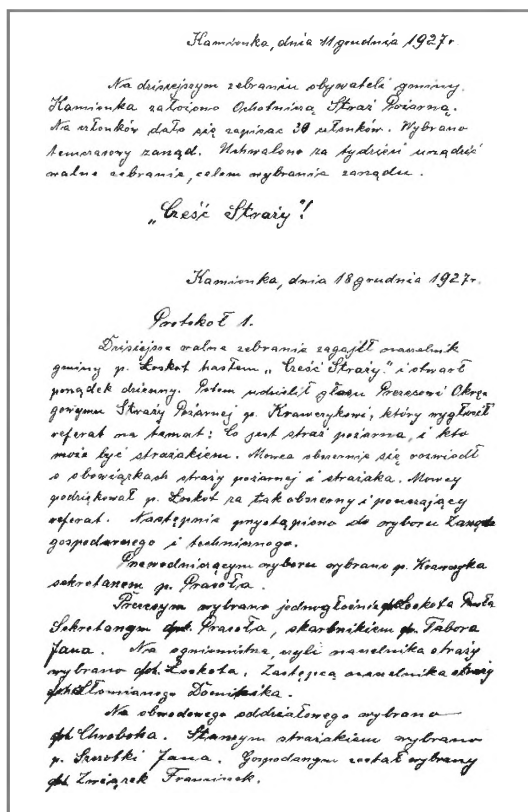 Kamionka, dnia 11 grudnia 1927 r.
Na dzisiejszym zebraniu obywateli gminy
Kamionka założono Ochotniczą Straż Pożarną.
Na członków dało się zapisać 30 członków. Wybrano
tymczasowy zarząd. Uchwalono za tydzień urządzić
walne zebranie, celem wybrania zarządu.
„Cześć Straży"!
Kamionka, dnia 18 grudnia 1927 r.
Protokół 1.
Dzisiejsze walne zebranie zagaił naczelnik
gminy p. Loskot hasłem „Cześć Straży" i otwarł
porządek dzienny. Potem udzielił głosu Prezesowi Okrę-
gowymu Straży Pożarnej p. Krawczykowi, który wygłosił
referat na temat: Co jest straż pożarna, i kto
może być strażakiem. Mowca obszernie się rozwiódł
o obowiązkach straży pożarnej i strażaka. Mowcy
podziękował p. Loskot za tak obszerny i pouczający
referat. Następnie przystąpiono do wyboru Zarządu
gospodarczego i technicznego.
Przewodniczącym wyboru wybrano p. Krawczyka
sekretarzem p. Prasoła.
Prezesym wybrano jednogłośnie Loskota Pawła
Sekretarzym Prasoła, skarbnikiem Tabora
Jana. Na ogniomistrza, czyli naczelnika straży
wybrano Loskota. Zastępcą naczelnika straży
Słomianego Dominika.
Na obwodowego oddziałowego wybrano
Chroboka. Starszym strażakiem wybrano
p. Szrotki Jana. Gospodarzym został wybrany
Związek Franciszek.